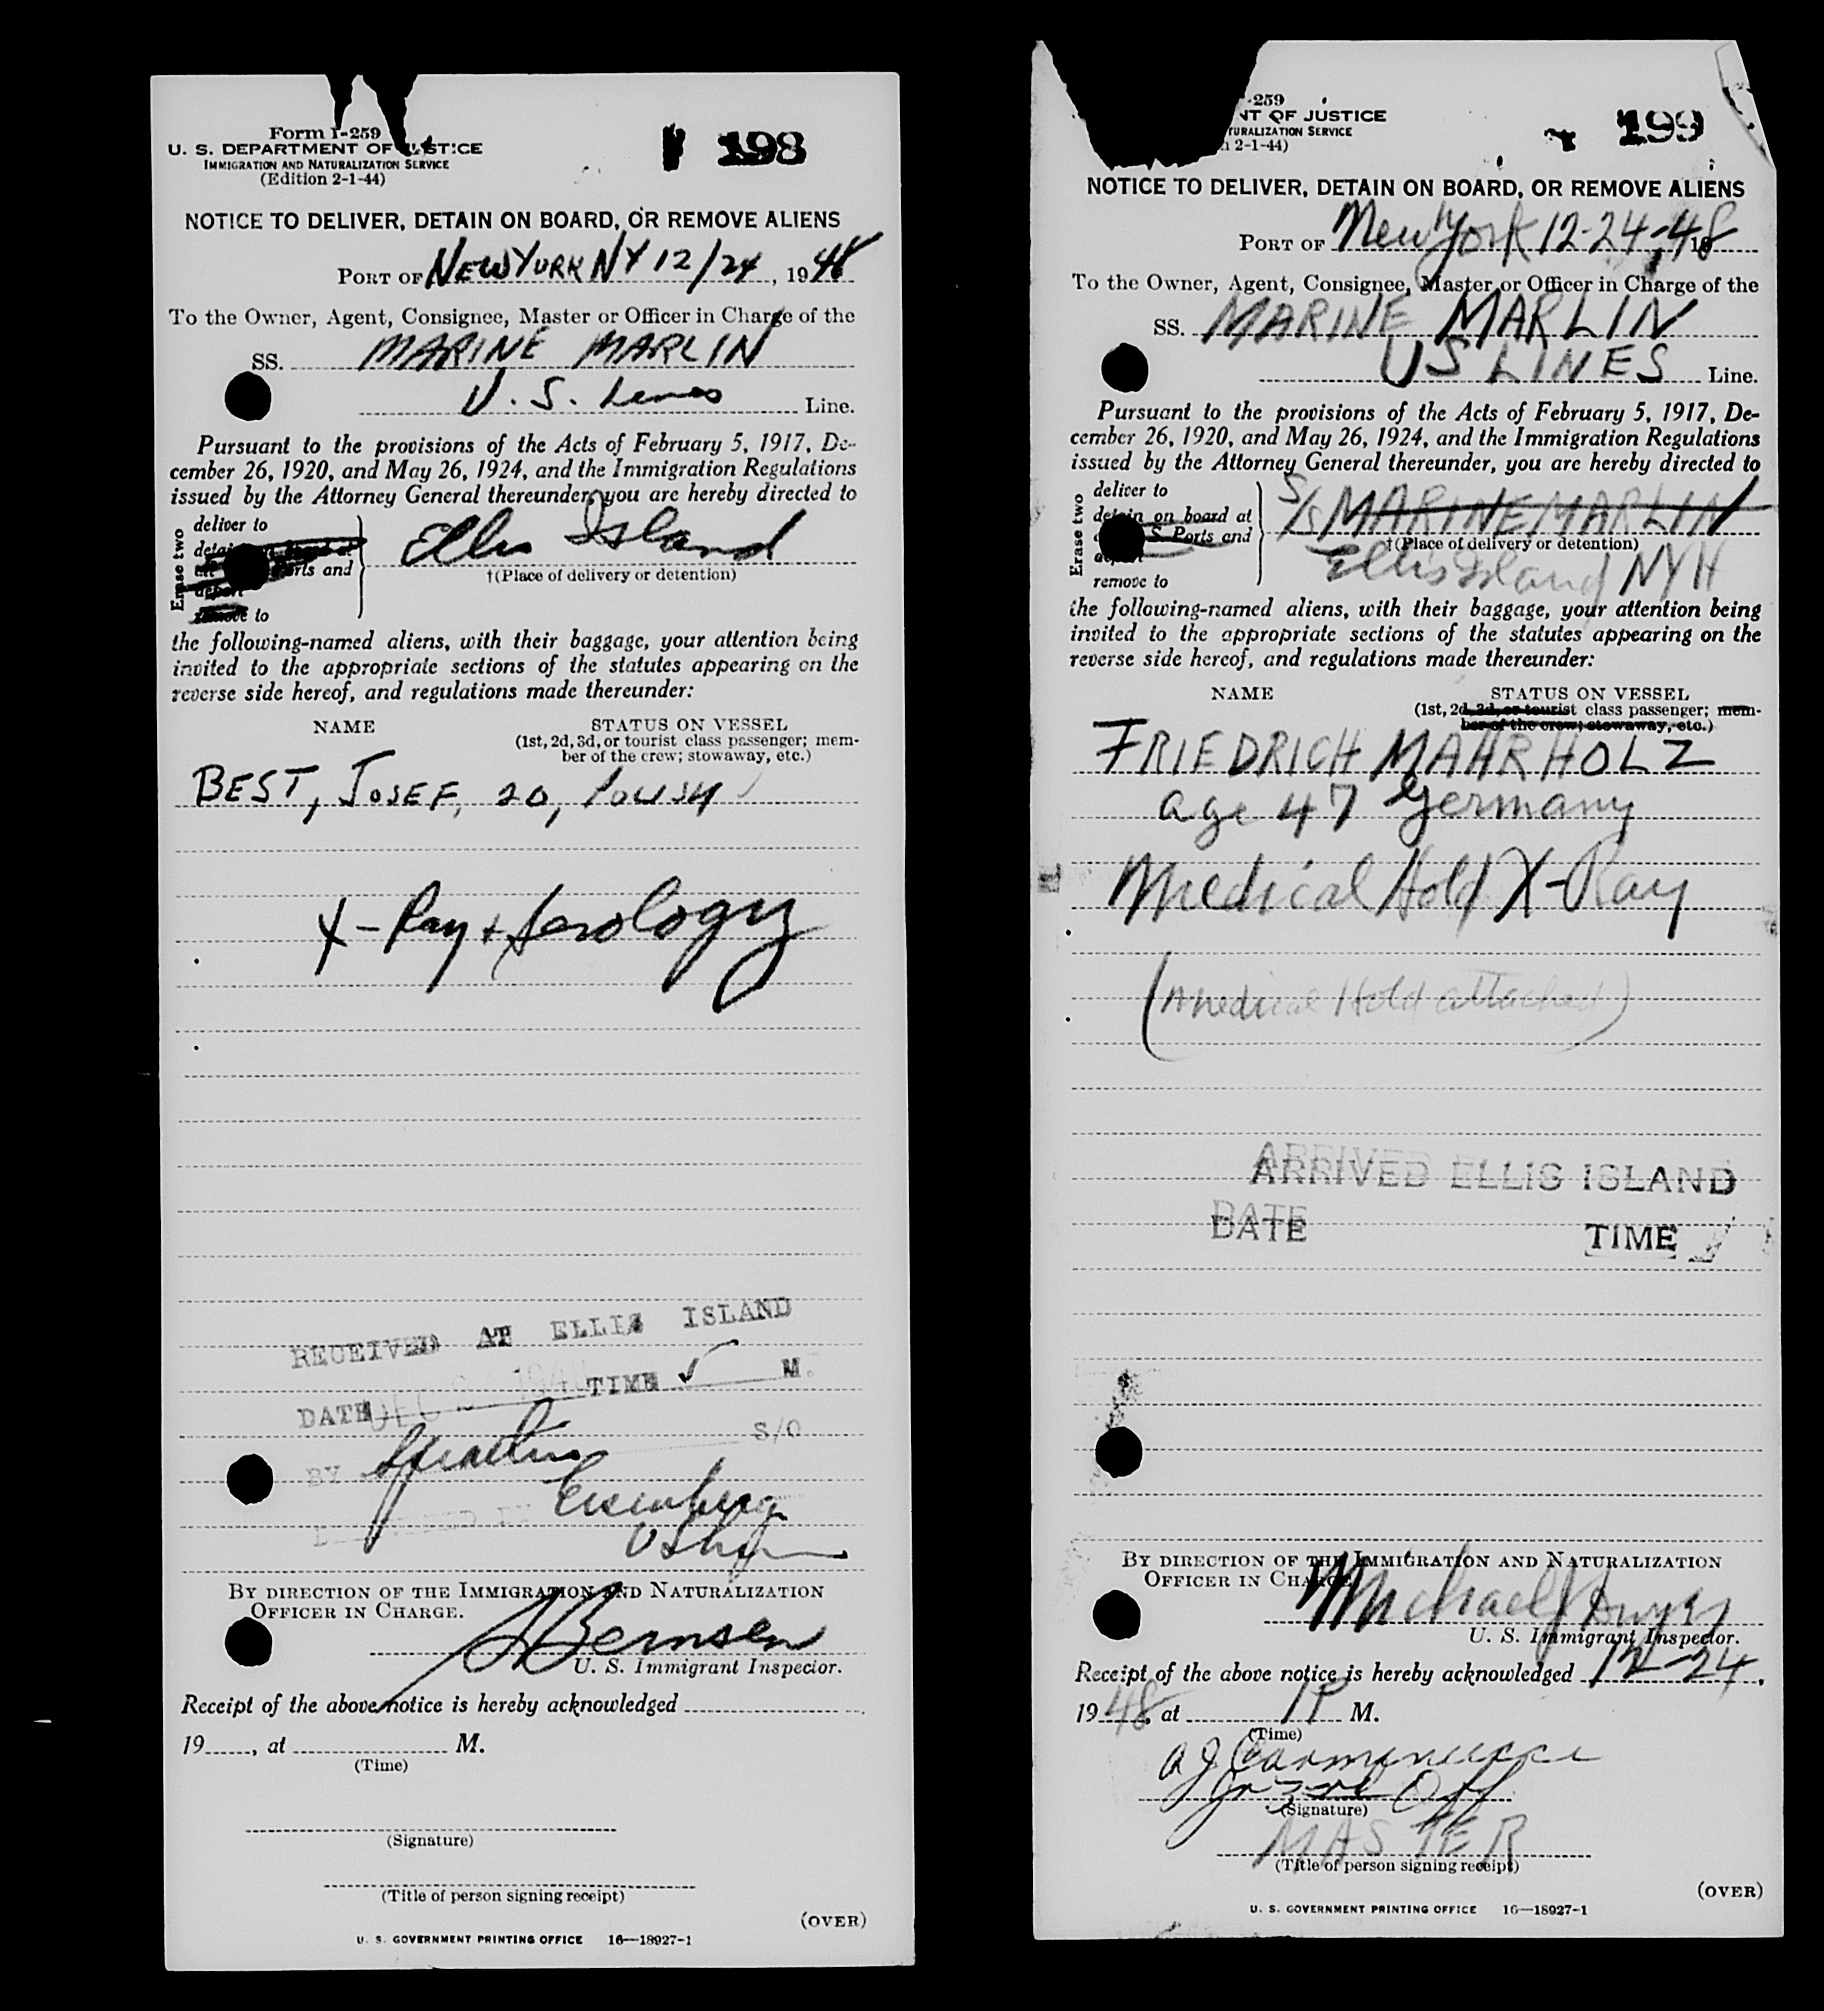 Form I-259
U. S. DEPARTMENT OF JUSTICE
IMMIGRATION AND NATURALIZATION SERVICE
(Edition 2-1-44)
198
NOTICE TO DELIVER, DETAIN ON BOARD, OR REMOVE ALIENS
PORT OF NEW YORK NY 12/24, 1948
To the Owner, Agent, Consignee, Master or Officer in Charge of the
SS. MARINE MARLIN
U. S. Lines Line.
Pursuant to the provisions of the Acts of February 5, 1917, De-
cember 26, 1920, and May 26, 1924, and the Immigration Regulations
issued by the Attorney General thereunder, you are hereby directed to
Erase two
deliver to
Ports and
deport
remove to
Ellis Island
†(Place of delivery or detention)
the following-named aliens, with their baggage, your attention being
invited to the appropriate sections of the statutes appearing on the
reverse side hereof, and regulations made thereunder:
NAME STATUS ON VESSEL
(1st, 2d, 3d, or tourist class passenger; mem-
ber of the crew; stowaway, etc.)
BEST, JOSEF, 20,
X-Ray + Serology
RECEIVED AT ELLIS ISLAND
DATE DEC TIME M.
BY S/O
Eisenberg
BY DIRECTION OF THE IMMIGRATION AND NATURALIZATION
OFFICER IN CHARGE.
Bernsen
U. S. Immigrant Inspector.
Receipt of the above notice is hereby acknowledged
19 , at M.
(Time)
(Signature)
(Title of person signing receipt)
(OVER)
U. S. GOVERNMENT PRINTING OFFICE 16—18927-1
-259
NT OF JUSTICE
TURALIZATION SERVICE
2-1-44)
199
NOTICE TO DELIVER, DETAIN ON BOARD, OR REMOVE ALIENS
PORT OF New York 12-24-48
To the Owner, Agent, Consignee, Master or Officer in Charge of the
SS. MARINE MARLIN
US LINES Line.
Pursuant to the provisions of the Acts of February 5, 1917, De-
cember 26, 1920, and May 26, 1924, and the Immigration Regulations
issued by the Attorney General thereunder, you are hereby directed to
Erase two
deliver to
detain on board at
S. Ports and
deport
remove to
S/S MARINE MARLIN
†(Place of delivery or detention)
Ellis Island NYH
the following-named aliens, with their baggage, your attention being
invited to the appropriate sections of the statutes appearing on the
reverse side hereof, and regulations made thereunder:
NAME STATUS ON VESSEL
(1st, 2d, 3d, or tourist class passenger; mem-
ber of the crew; stowaway, etc.)
FRIEDRICH MAHRHOLZ
age 47 Germany
Medical Hold X-Ray
(Medical Hold attached)
ARRIVED ELLIS ISLAND
DATE TIME
BY DIRECTION OF THE IMMIGRATION AND NATURALIZATION
OFFICER IN CHARGE
Michael J Dwyer
U. S. Immigrant Inspector.
Receipt of the above notice is hereby acknowledged 12-24,
1948, at 1 P M.
(Time)
(Signature)
MASTER
(Title of person signing receipt)
(OVER)
U. S. GOVERNMENT PRINTING OFFICE 16—18927-1